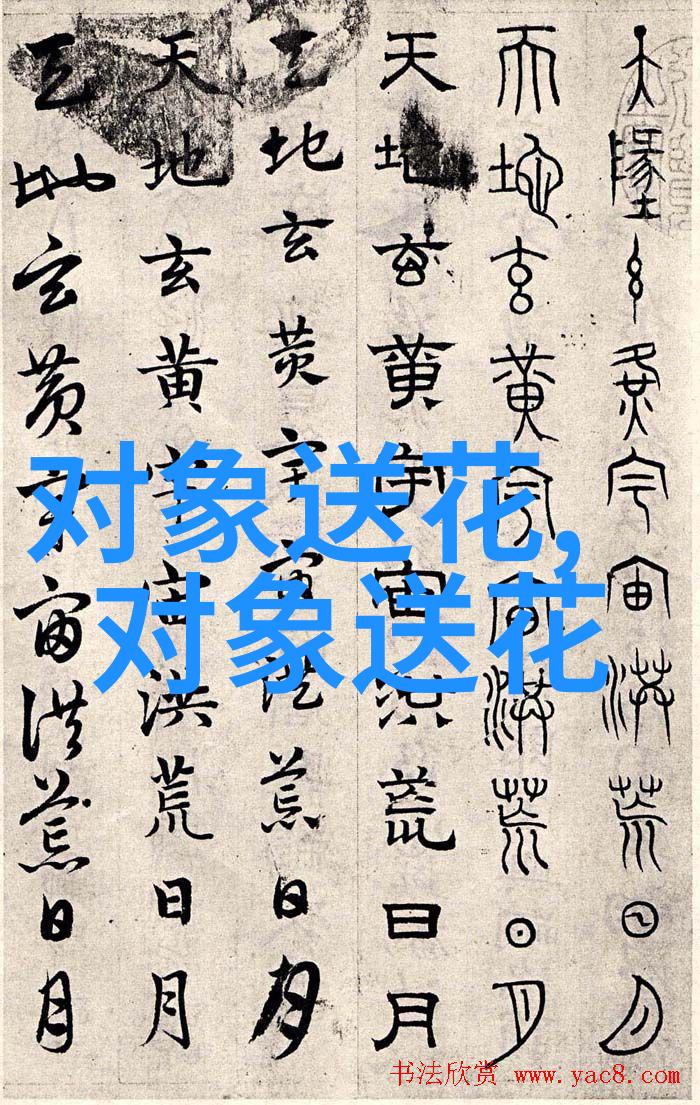 天墬玄黄宇宙洪荒日月
天地玄黄宇宙洪荒日月
天地玄黄宇宙洪荒日月
天地玄黄宇宙洪荒日月
天地玄黄宇宙洪荒日月
天地玄黄宇宙洪荒日月
对象送花,
对象送花
书法欣赏 www.yac8.com